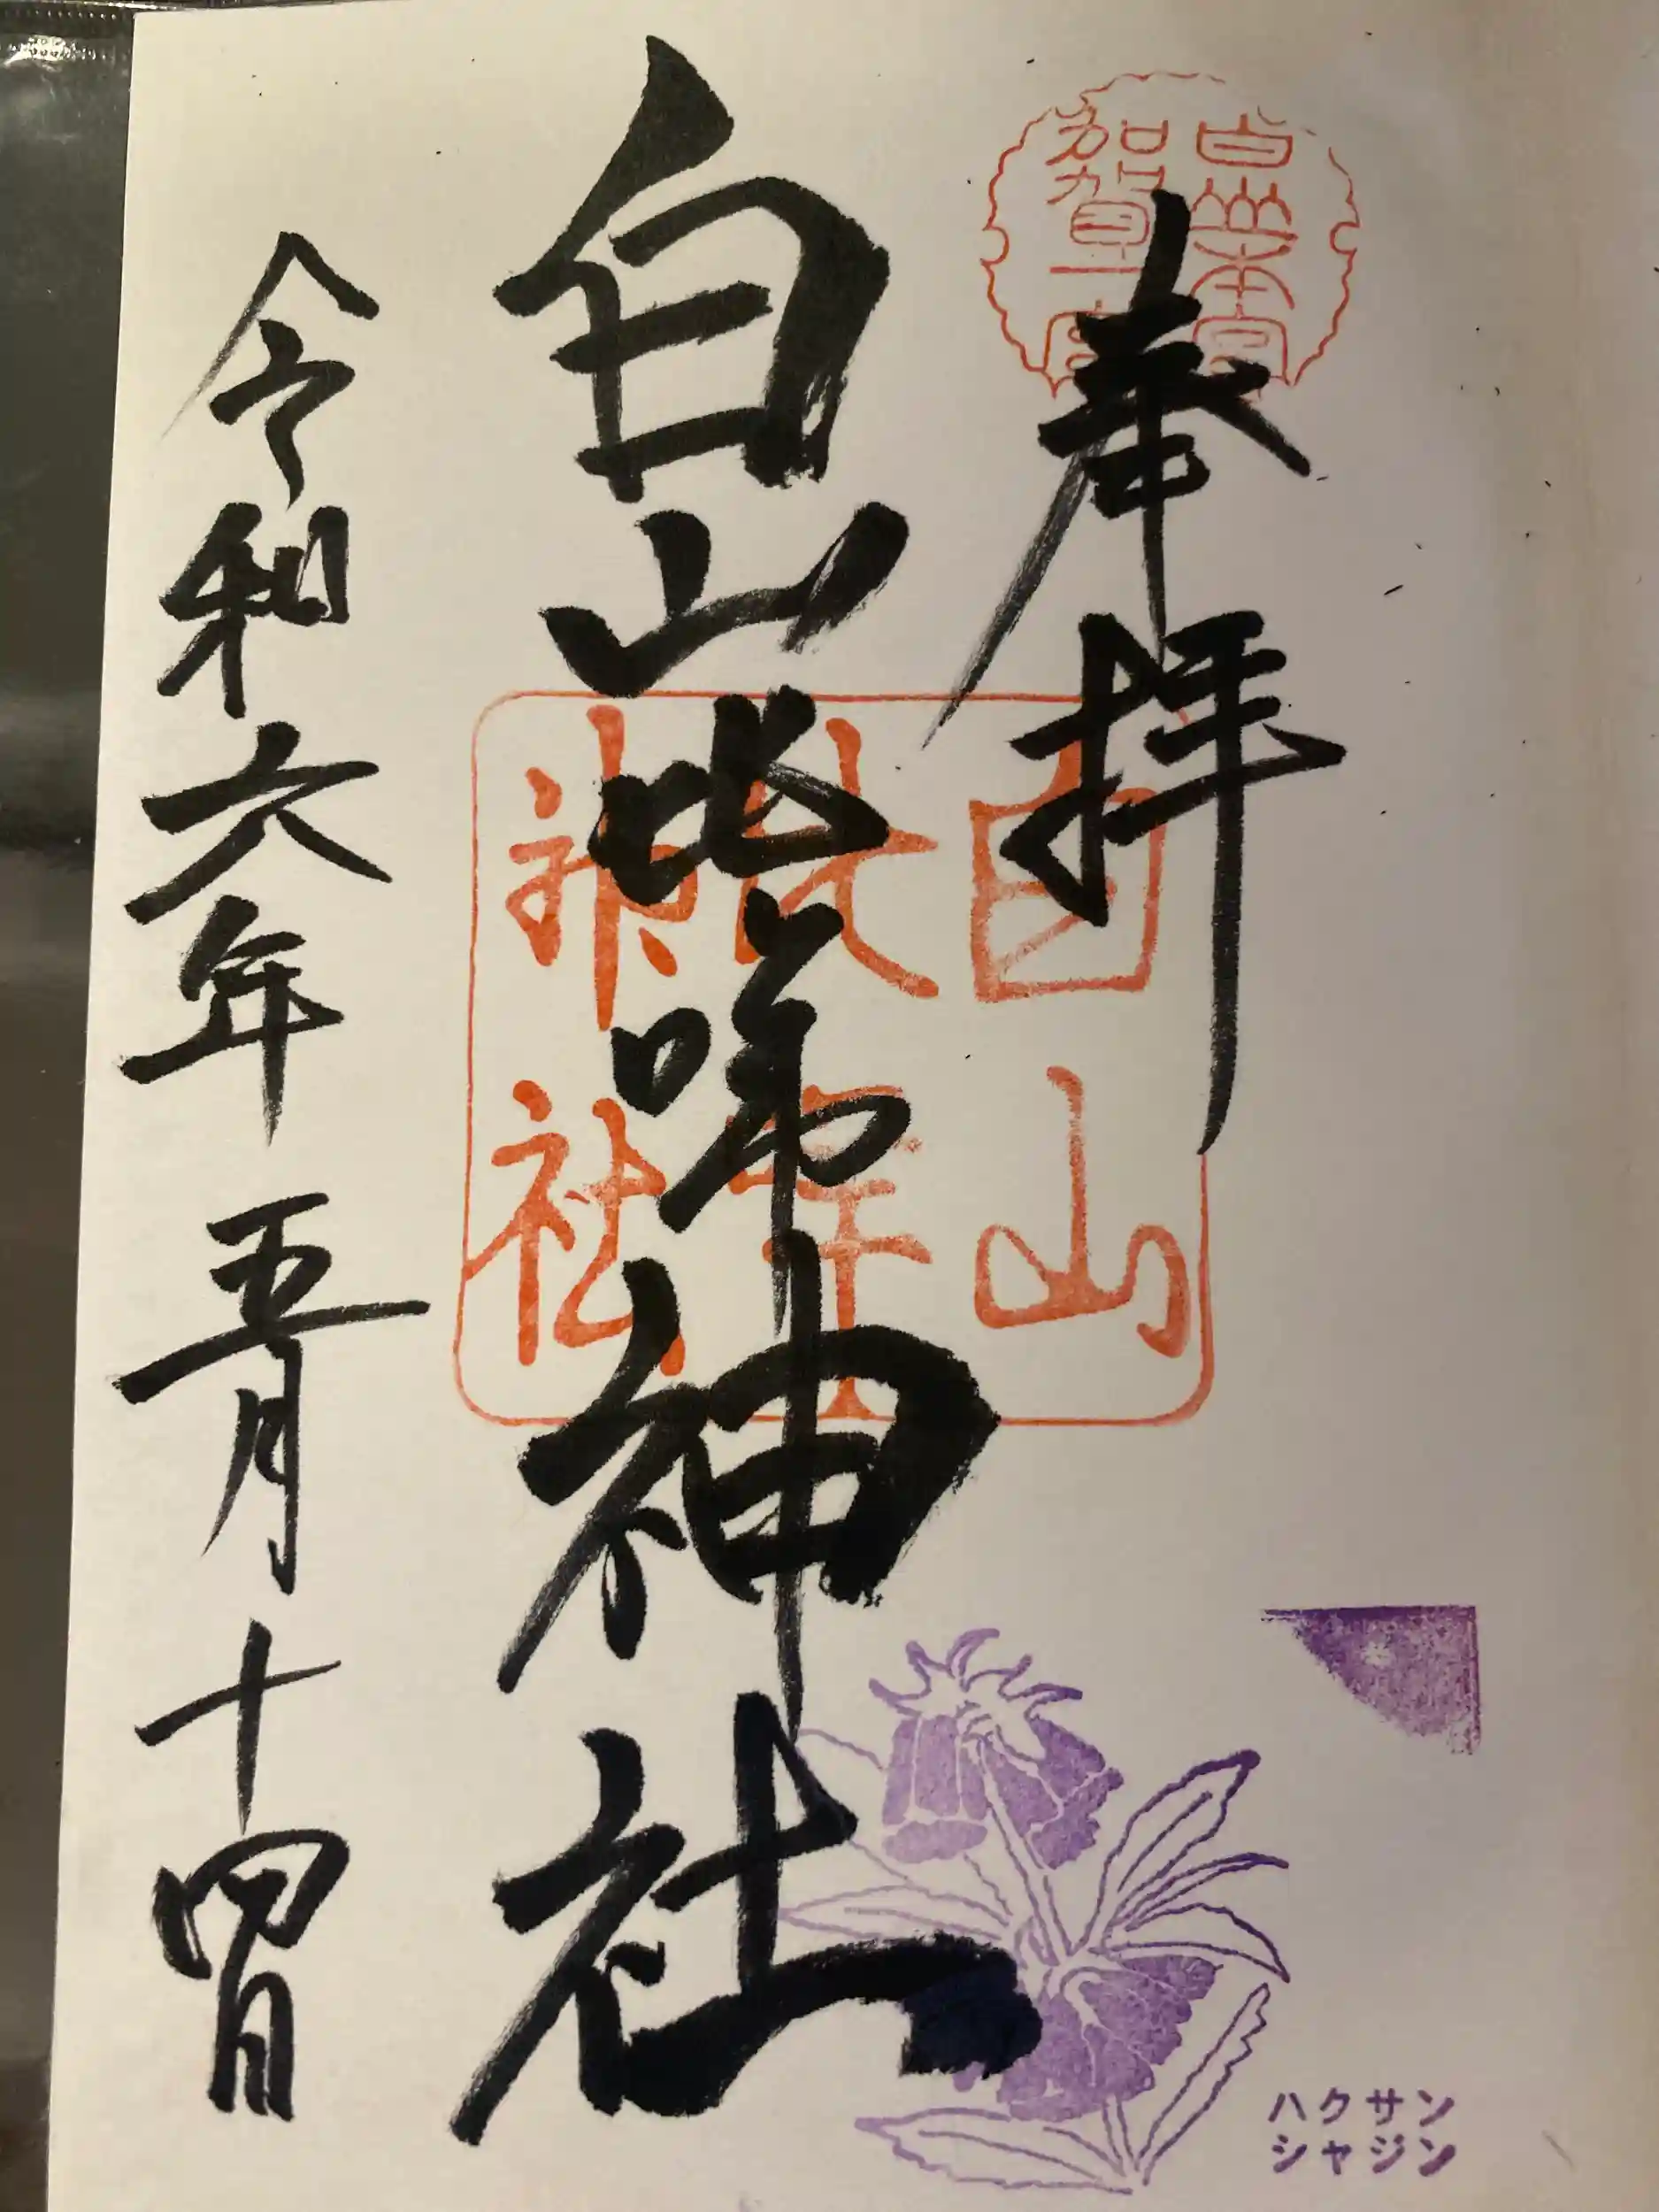 奉拝
白山本宮
加賀一宮
白山比咩神社
白山
比咩
神社
令和六年五月十四日
ハクサン
シャジン